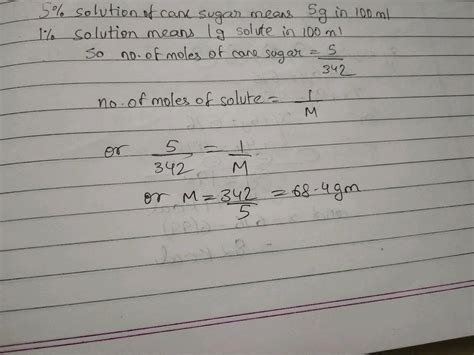 5% solution of cane sugar means 5g in 100 ml
1% solution means 1g solute in 100 ml
So no. of moles of cane sugar = 5/342
no. of moles of solute = 1/M
or 5/342 = 1/M
or M = 342/5 = 68.4 gm